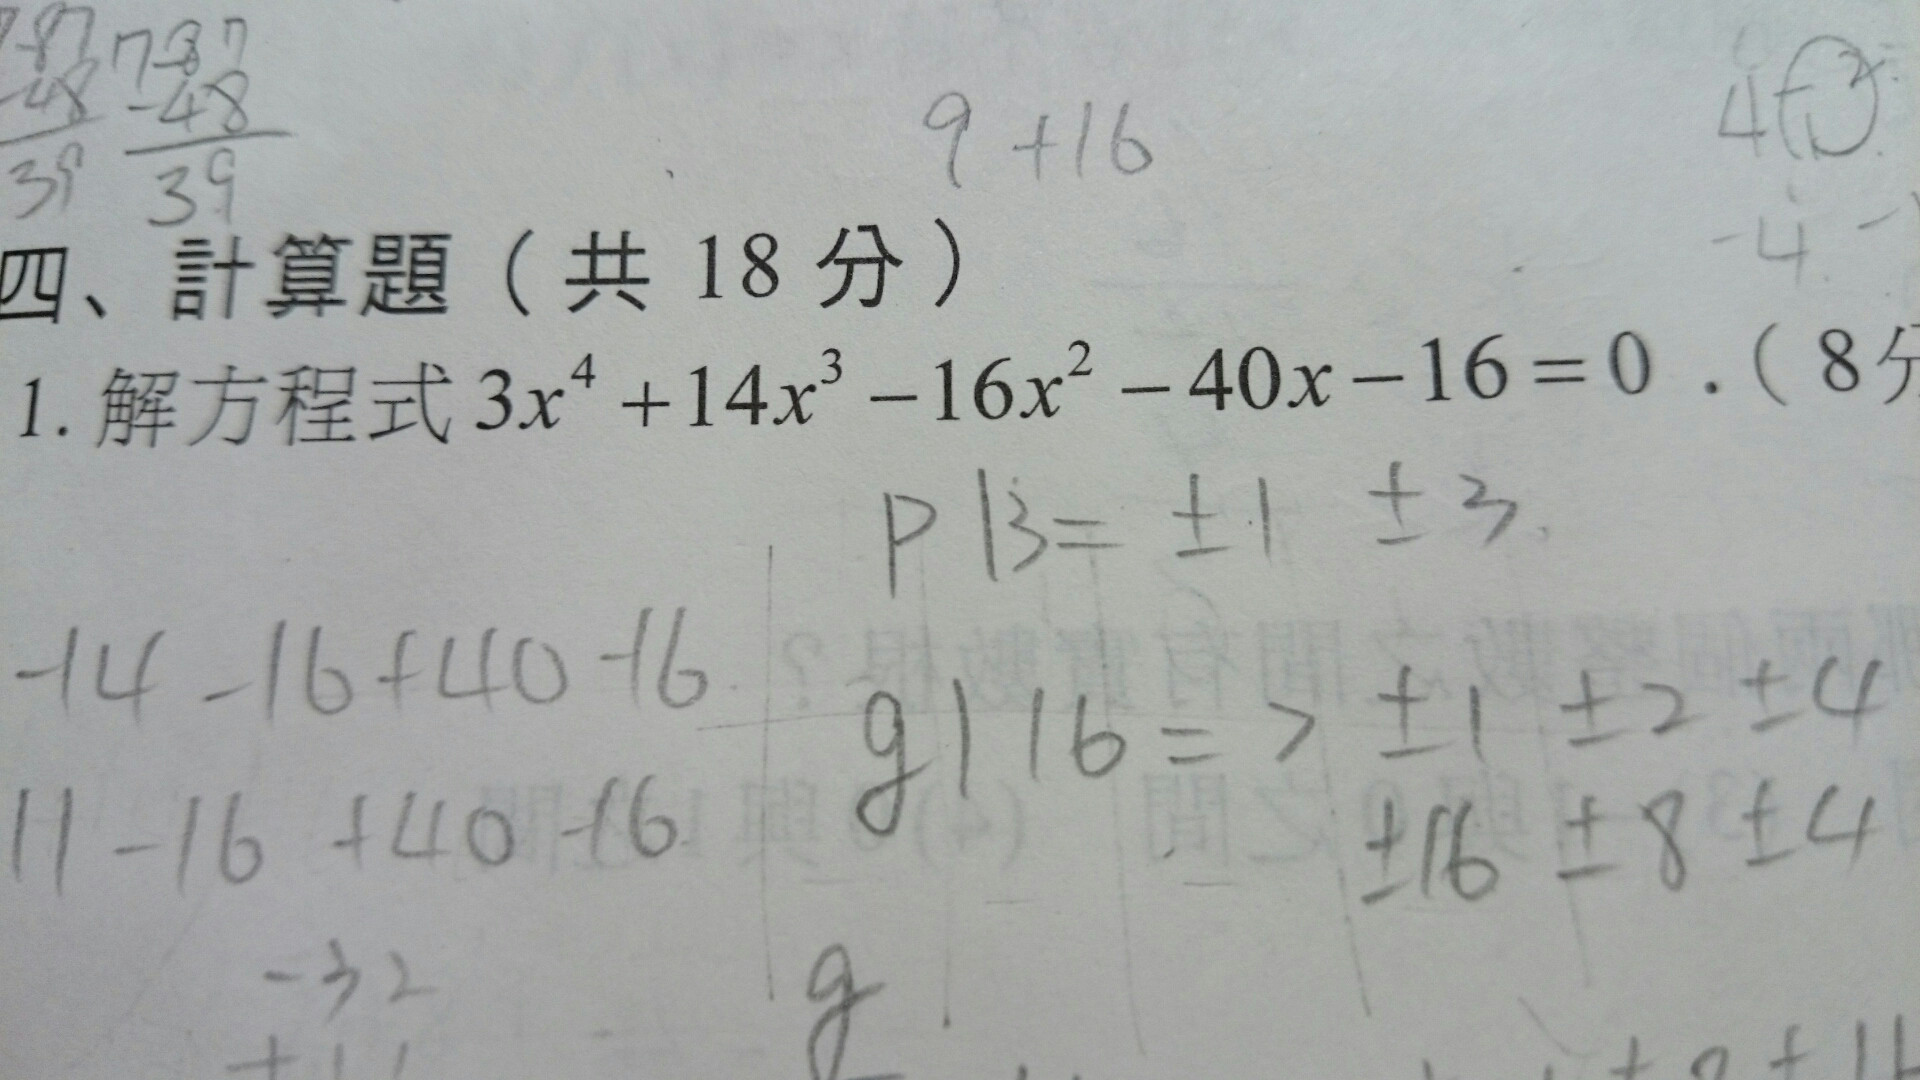 -87 7-87
-48 -48
39 39
9 +16
-4
四、計算題（共 18 分）
1. 解方程式 3x⁴ +14x³ −16x² −40x −16 = 0 .（ 8分
p 13= ±1 ±3.
-14 -16+40-16
g|16=> ±1 ±2 ±4
11-16 +40-16
±16 ±8 ±4
-32
g